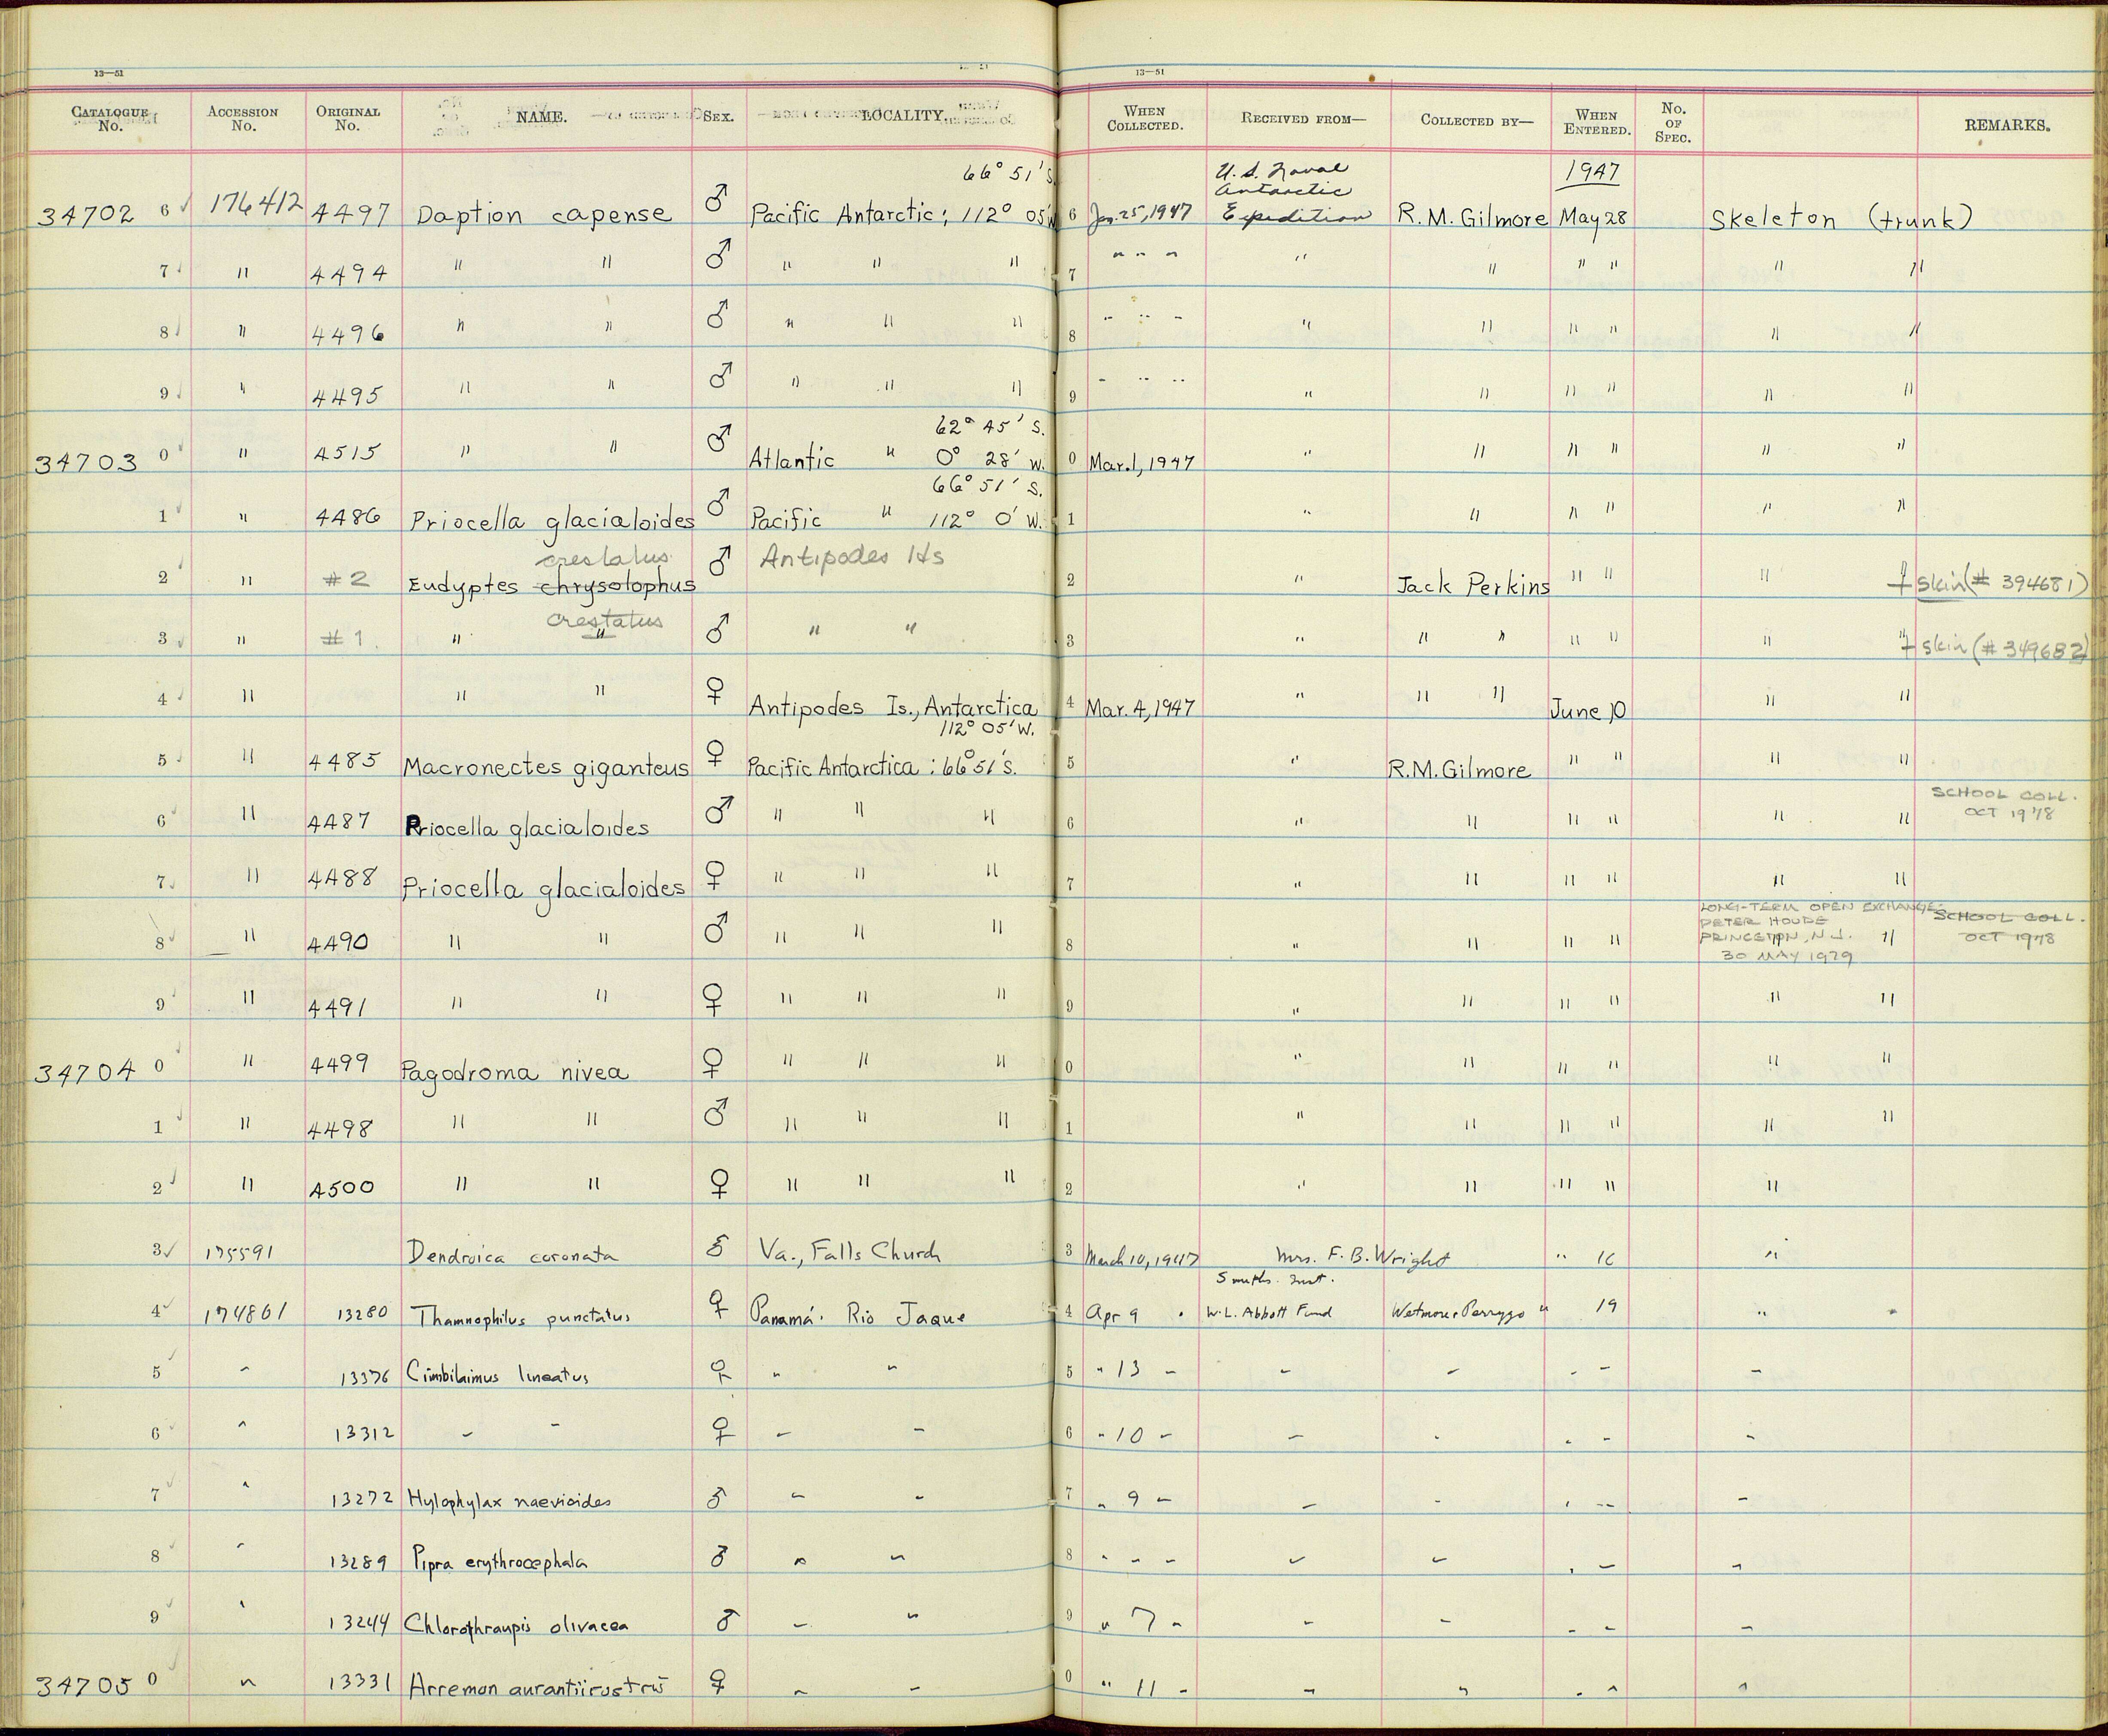 13—51 13—51
CATALOGUE No. ACCESSION No. ORIGINAL No. NAME. SEX. LOCALITY. WHEN COLLECTED. RECEIVED FROM— COLLECTED BY— WHEN ENTERED. No. OF SPEC. REMARKS.
66° 51' S. U. S. Naval Antarctic 1947
34702 6 ✓ 176412 4497 Daption capense ♂ Pacific Antarctic; 112° 05'W 6 Jan. 25, 1947 Expedition R.M. Gilmore May 28 Skeleton (trunk)
7 ✓ " 4494 " " ♂ " " " 7 " " " " " " " " "
8 ✓ " 4496 " " ♂ " " " 8 " " " " " " " " "
9 ✓ " 4495 " " ♂ " " " 9 " " " " " " " " "
62° 45' S.
34703 0 ✓ " 4515 " " ♂ Atlantic " 0° 28' W. 0 Mar. 1, 1947 " " " " " "
66° 51' S.
1 ✓ " 4486 Priocella glacialoides ♂ Pacific " 112° 0' W. 1 " " " " " "
crestatus
2 ✓ " #2 Eudyptes chrysolophus ♂ Antipodes Ids 2 " Jack Perkins " " " " + skin (# 394681)
crestatus
3 ✓ " #1 " " ♂ " " 3 " " " " " " " + skin (# 349682)
4 ✓ " " " ♀ Antipodes Is., Antarctica 4 Mar. 4, 1947 " " " June 10 " "
112° 05' W.
5 ✓ " 4485 Macronectes giganteus ♀ Pacific Antarctica : 66° 51' S. 5 " R.M. Gilmore " " " "
SCHOOL COLL.
6 ✓ " 4487 Priocella glacialoides ♂ " " " 6 " " " " " " OCT 1978
7 ✓ " 4488 Priocella glacialoides ♀ " " " 7 " " " " " "
LONG-TERM OPEN EXCHANGE: SCHOOL COLL.
PETER HOUDE
8 ✓ " 4490 " " ♂ " " " 8 " " " " PRINCETON, N.J. " " OCT 1978
30 MAY 1979
9 ✓ " 4491 " " ♀ " " " 9 " " " " " "
34704 0 ✓ " 4499 Pagodroma nivea ♀ " " " 0 " " " " " "
1 ✓ " 4498 " " ♂ " " " 1 " " " " " "
2 ✓ " 4500 " " ♀ " " " 2 " " " " "
3 ✓ 175591 Dendroica coronata ♂ Va., Falls Church 3 March 10, 1947 Mrs. F. B. Wright " 16 "
Smiths. Inst.
4 ✓ 174861 13280 Thamnophilus punctatus ♀ Panamá: Rio Jaque 4 Apr 9 " W. L. Abbott Fund Wetmore & Perrygo " 19 " "
5 ✓ " 13376 Cimbilaimus lineatus ♀ " " 5 " 13 " " " " " "
6 ✓ " 13312 " " ♀ " " 6 " 10 " " " " " "
7 ✓ " 13272 Hylophylax naevioides ♂ " " 7 " 9 " " " " " "
8 ✓ " 13289 Pipra erythrocephala ♂ " " 8 " " " " " " " "
9 ✓ " 13244 Chlorothraupis olivacea ♂ " " 9 " 7 " " " " " "
34705 0 ✓ " 13331 Arremon aurantiirostris ♀ " " 0 " 11 " " " " " "